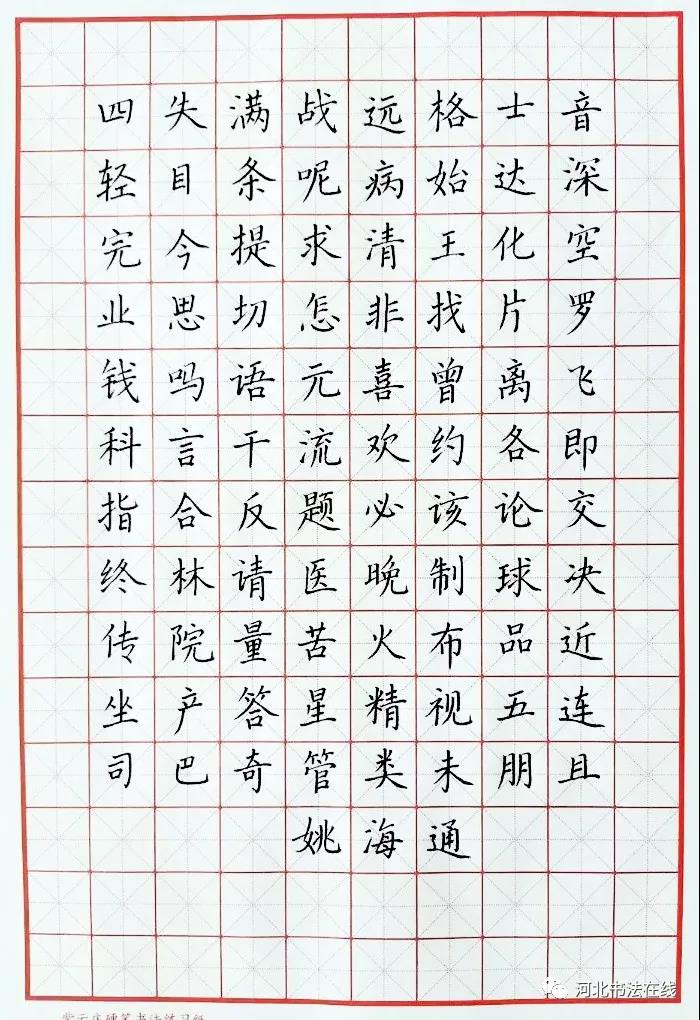 四失满战远格士音
轻目条呢病始达深
完今提求清王化空
业思切怎非找片罗
钱吗语元喜曾离飞
科言干流欢约各即
指合反题必该论交
终林请医晚制球决
传院量苦火布品近
坐产答星精视五连
司巴奇管类未朋且
姚海通
河北书法在线